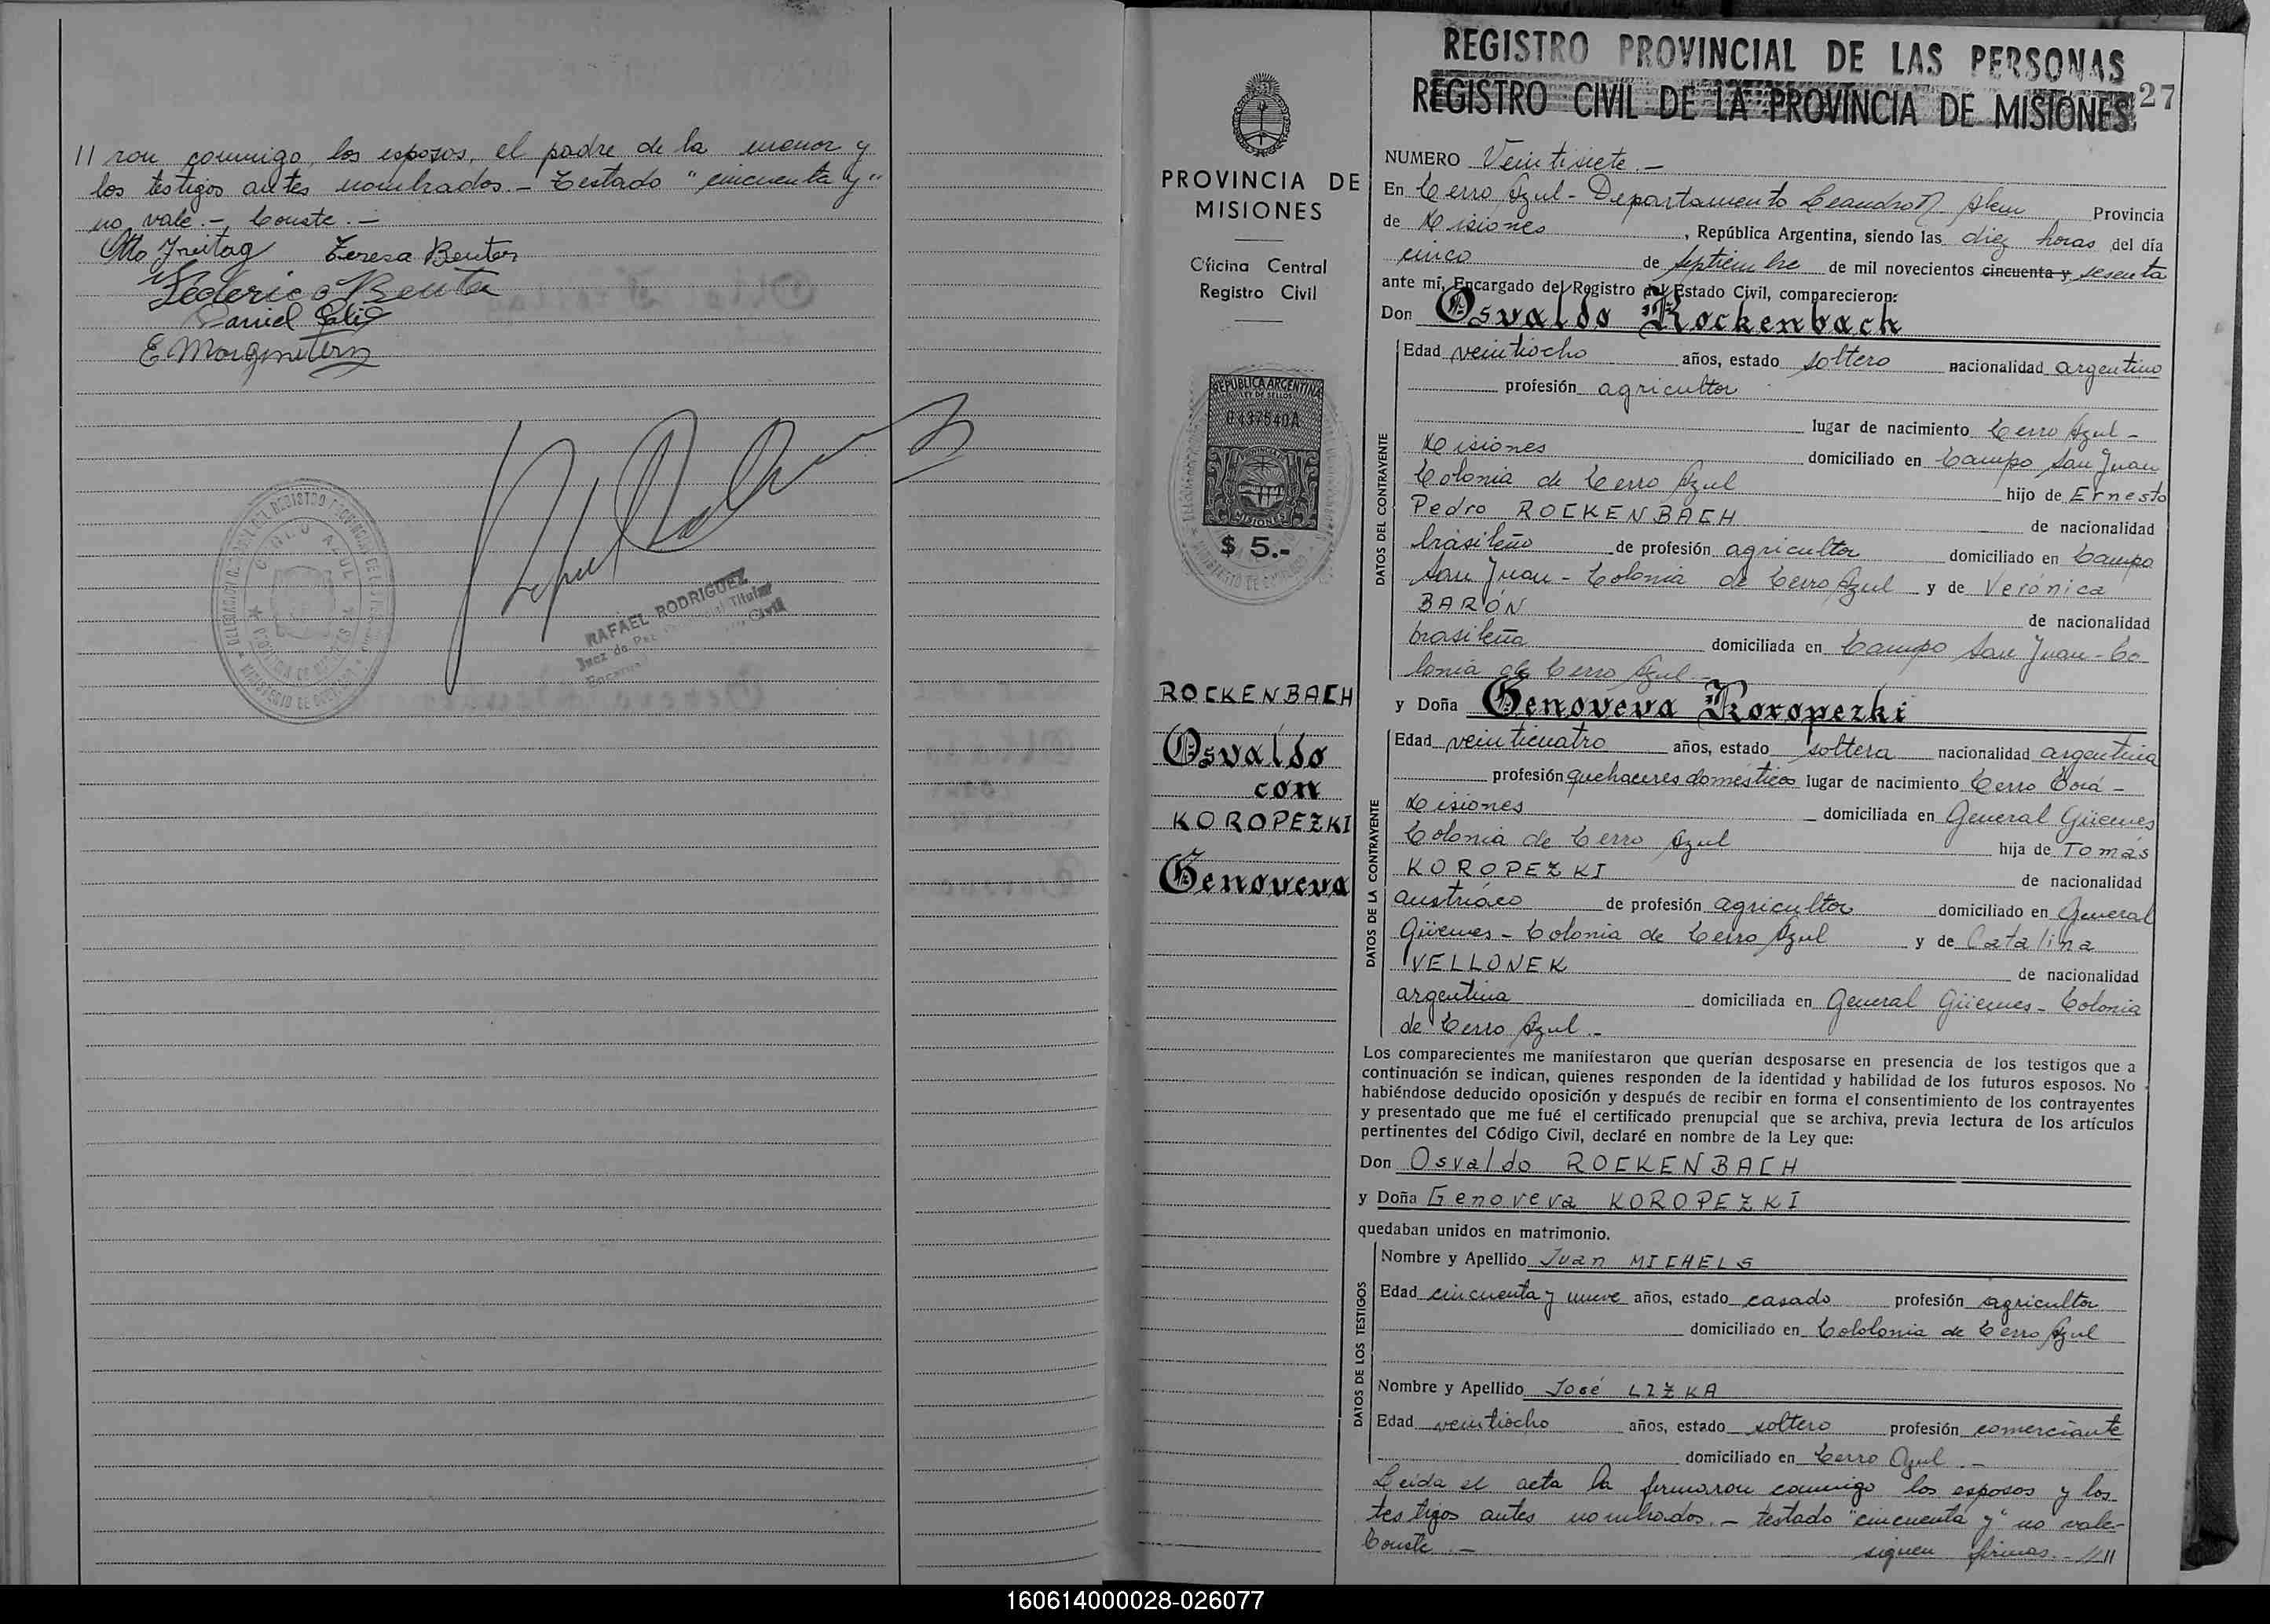 // ron conmigo, los esposos, el padre de la menor y
los testigos antes nombrados.- Testado "cincuenta y"
no vale.- Conste.-
Otto Freitag Teresa Benter
Federico Benter
Daniel
RAFAEL RODRIGUEZ
Juez de Paz Titular
Civil
PROVINCIA DE
MISIONES
Oficina Central
Registro Civil
REPUBLICA ARGENTINA
LEY DE SELLOS
0437540A
PROVINCIA
MISIONES
$ 5.-
ROCKENBACH
Osvaldo
con
KOROPEZKI
Genoveva
REGISTRO PROVINCIAL DE LAS PERSONAS
REGISTRO CIVIL DE LA PROVINCIA DE MISIONES
27
NUMERO Veintisiete.-
En Cerro Azul - Departamento Leandro N. Alem Provincia
de Misiones, República Argentina, siendo las diez horas del día
cinco de septiembre de mil novecientos cincuenta y sesenta
ante mí, Encargado del Registro del Estado Civil, comparecieron:
Don Osvaldo Rockenbach
Edad veintiocho años, estado soltero nacionalidad argentino
profesión agricultor
lugar de nacimiento Cerro Azul -
Misiones domiciliado en Campo San Juan
Colonia de Cerro Azul hijo de Ernesto
Pedro ROCKENBACH de nacionalidad
brasileño de profesión agricultor domiciliado en Campo
San Juan - Colonia de Cerro Azul y de Verónica
BARÓN de nacionalidad
brasileña domiciliada en Campo San Juan - Co-
lonia de Cerro Azul.-
y Doña Genoveva Koropezki
Edad veinticuatro años, estado soltera nacionalidad argentina
profesión quehaceres domésticos lugar de nacimiento Cerro Corá -
Misiones domiciliada en General Güemes
Colonia de Cerro Azul hija de Tomás
KOROPEZKI de nacionalidad
austríaco de profesión agricultor domiciliado en General
Güemes - Colonia de Cerro Azul y de Catalina
VELLONEK de nacionalidad
argentina domiciliada en General Güemes - Colonia
de Cerro Azul.-
DATOS DEL CONTRAYENTE
DATOS DE LA CONTRAYENTE
Los comparecientes me manifestaron que querían desposarse en presencia de los testigos que a
continuación se indican, quienes responden de la identidad y habilidad de los futuros esposos. No
habiéndose deducido oposición y después de recibir en forma el consentimiento de los contrayentes
y presentado que me fué el certificado prenupcial que se archiva, previa lectura de los artículos
pertinentes del Código Civil, declaré en nombre de la Ley que:
Don Osvaldo ROCKENBACH
y Doña Genoveva KOROPEZKI
quedaban unidos en matrimonio.
DATOS DE LOS TESTIGOS
Nombre y Apellido Juan MICHELS
Edad cincuenta y nueve años, estado casado profesión agricultor
domiciliado en Cololonia de Cerro Azul
Nombre y Apellido José LIZKA
Edad veintiocho años, estado soltero profesión comerciante
domiciliado en Cerro Azul.-
Leída el acta la firmaron conmigo los esposos y los
testigos antes nombrados.- testado "cincuenta y" no vale-
Conste.- siguen firmas.- ////
160614000028-026077